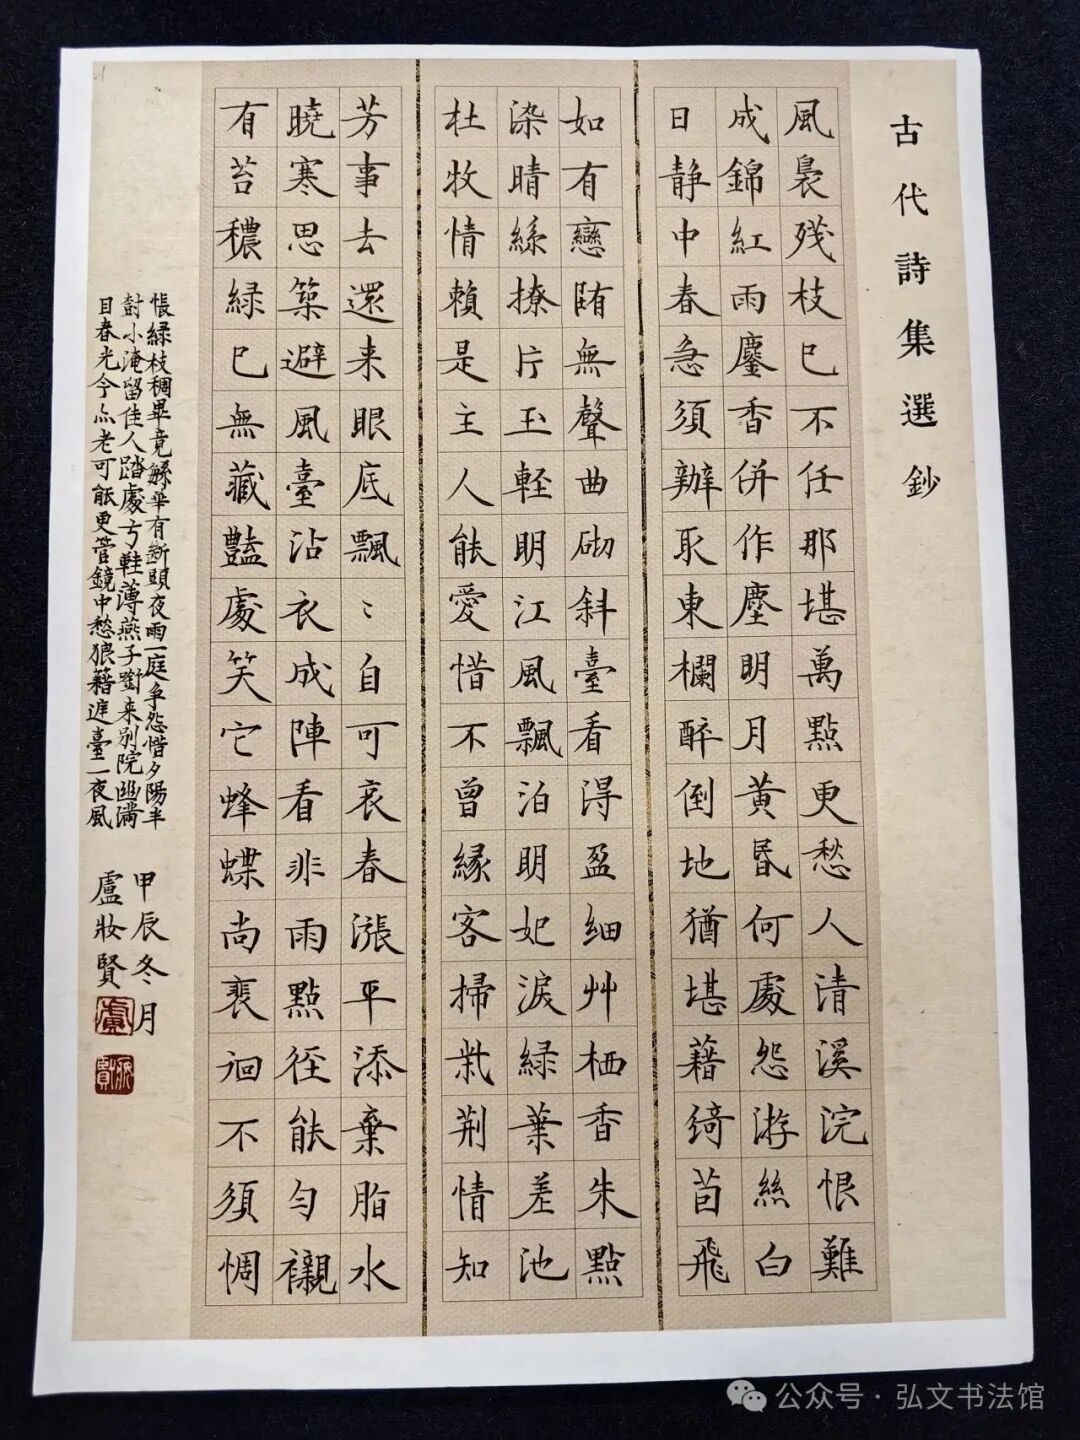 古代詩集選鈔
風裊残枝已不任那堪萬點更愁人清溪浣恨難
成錦紅雨鏖香併作塵明月黄昏何處怨游絲白
日静中春急須辦取東欄醉倒地猶堪藉綺茵飛
如有戀陏無聲曲砌斜臺看得盈細艸栖香朱點
染晴絲撩片玉軽明江風飄泊明妃淚緑葉差池
杜牧情賴是主人能愛惜不曾緣客掃柴荆情知
芳事去還来眼底飄〻自可哀春漲平添棄脂水
曉寒思築避風臺沾衣成陣看非雨點徑能勻襯
有苔穠緑已無藏豔處笑它蜂蝶尚裵徊不須惆
悵緑枝稠畢竟鲧華有断頭夜雨一庭争怨惜夕陽半
封小淹留佳人踏處弓鞋薄燕子劉来别院幽满
目春光今亦老可能更管鏡中愁狼藉遊臺一夜風
甲辰冬月
盧妝賢
公众号·弘文书法馆